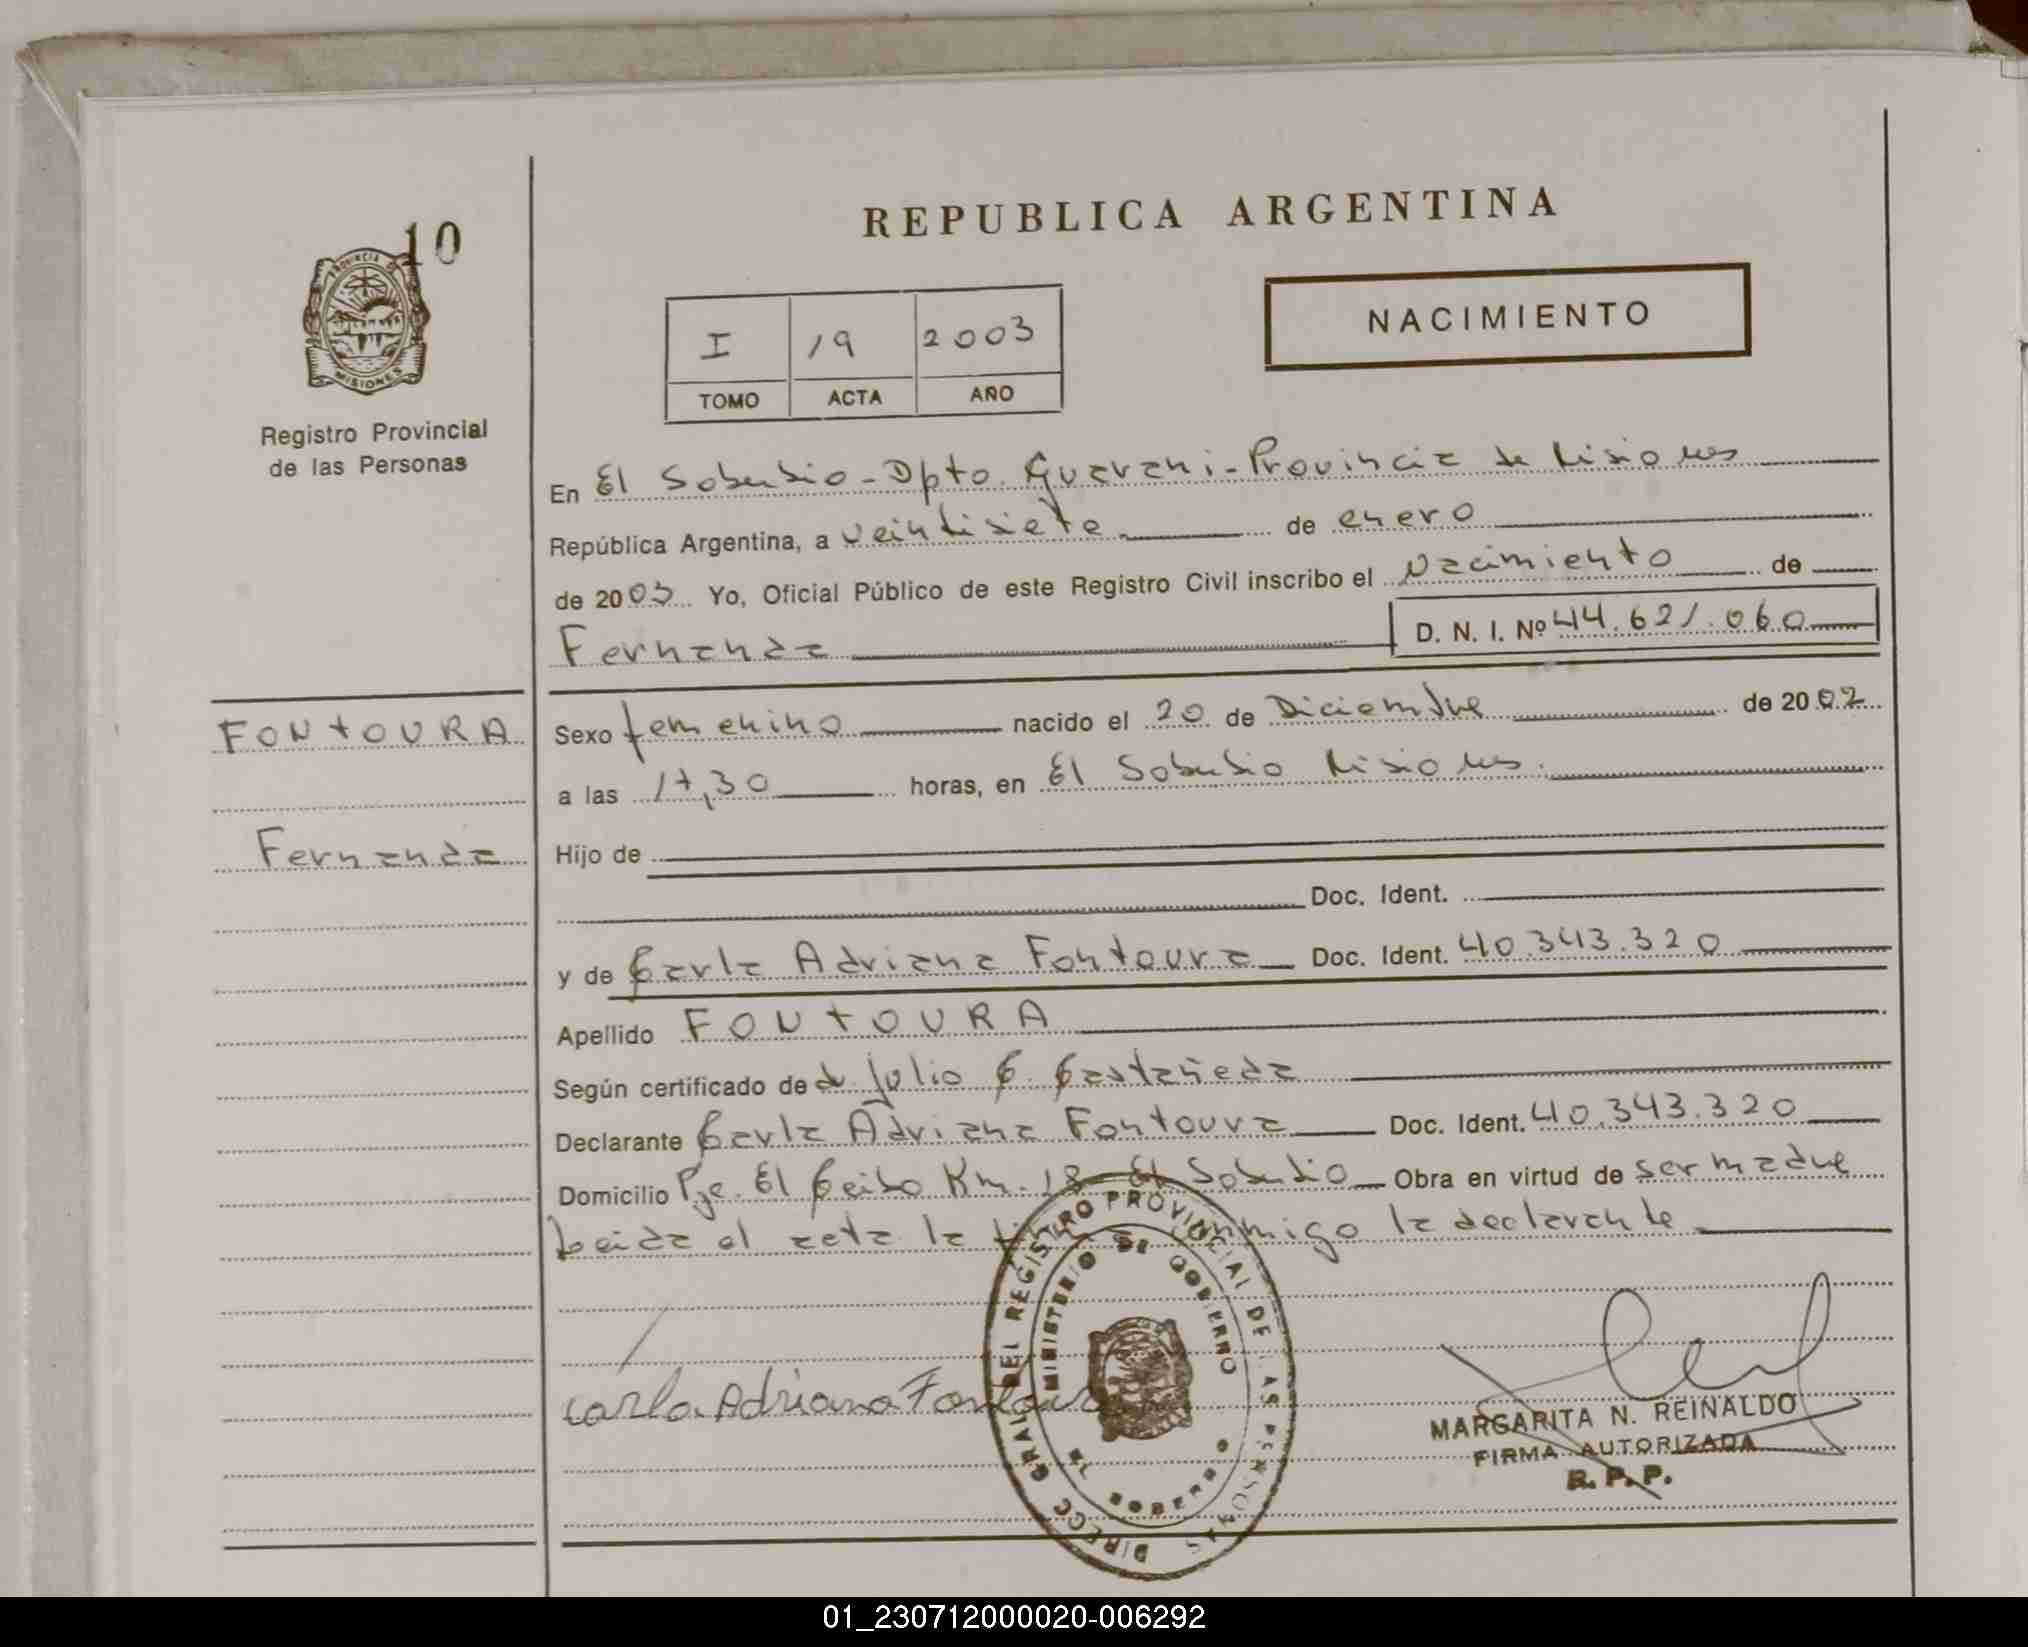 10
PROVINCIA DE
MISIONES
Registro Provincial
de las Personas
REPUBLICA ARGENTINA
NACIMIENTO
I 19 2003
TOMO ACTA AÑO
En El Soberbio - Dpto. Guarani - Provincia de Misiones
República Argentina, a veintisiete de enero
de 2003 Yo, Oficial Público de este Registro Civil inscribo el Nacimiento de
Fernanda D. N. I. Nº 44.621.060
FONTOURA
Fernanda
Sexo femenino nacido el 20 de Diciembre de 2002
a las 17,30 horas, en El Soberbio Misiones.
Hijo de
Doc. Ident.
y de Carla Adriana Fontoura Doc. Ident. 40.343.320
Apellido FONTOURA
Según certificado de Julio C. Castañeda
Declarante Carla Adriana Fontoura Doc. Ident. 40.343.320
Domicilio Pje. El Ceibo Km. 18 El Soberbio Obra en virtud de ser madre
Leida el acta la conmigo la declarante
Carla Adriana Fontoura
DIRECC GRAL DEL REGISTRO PROVINCIAL DE LAS PERSONAS
MINISTERIO DE GOBIERNO
MARGARITA N. REINALDO
FIRMA AUTORIZADA
R. P. P.
01_230712000020-006292